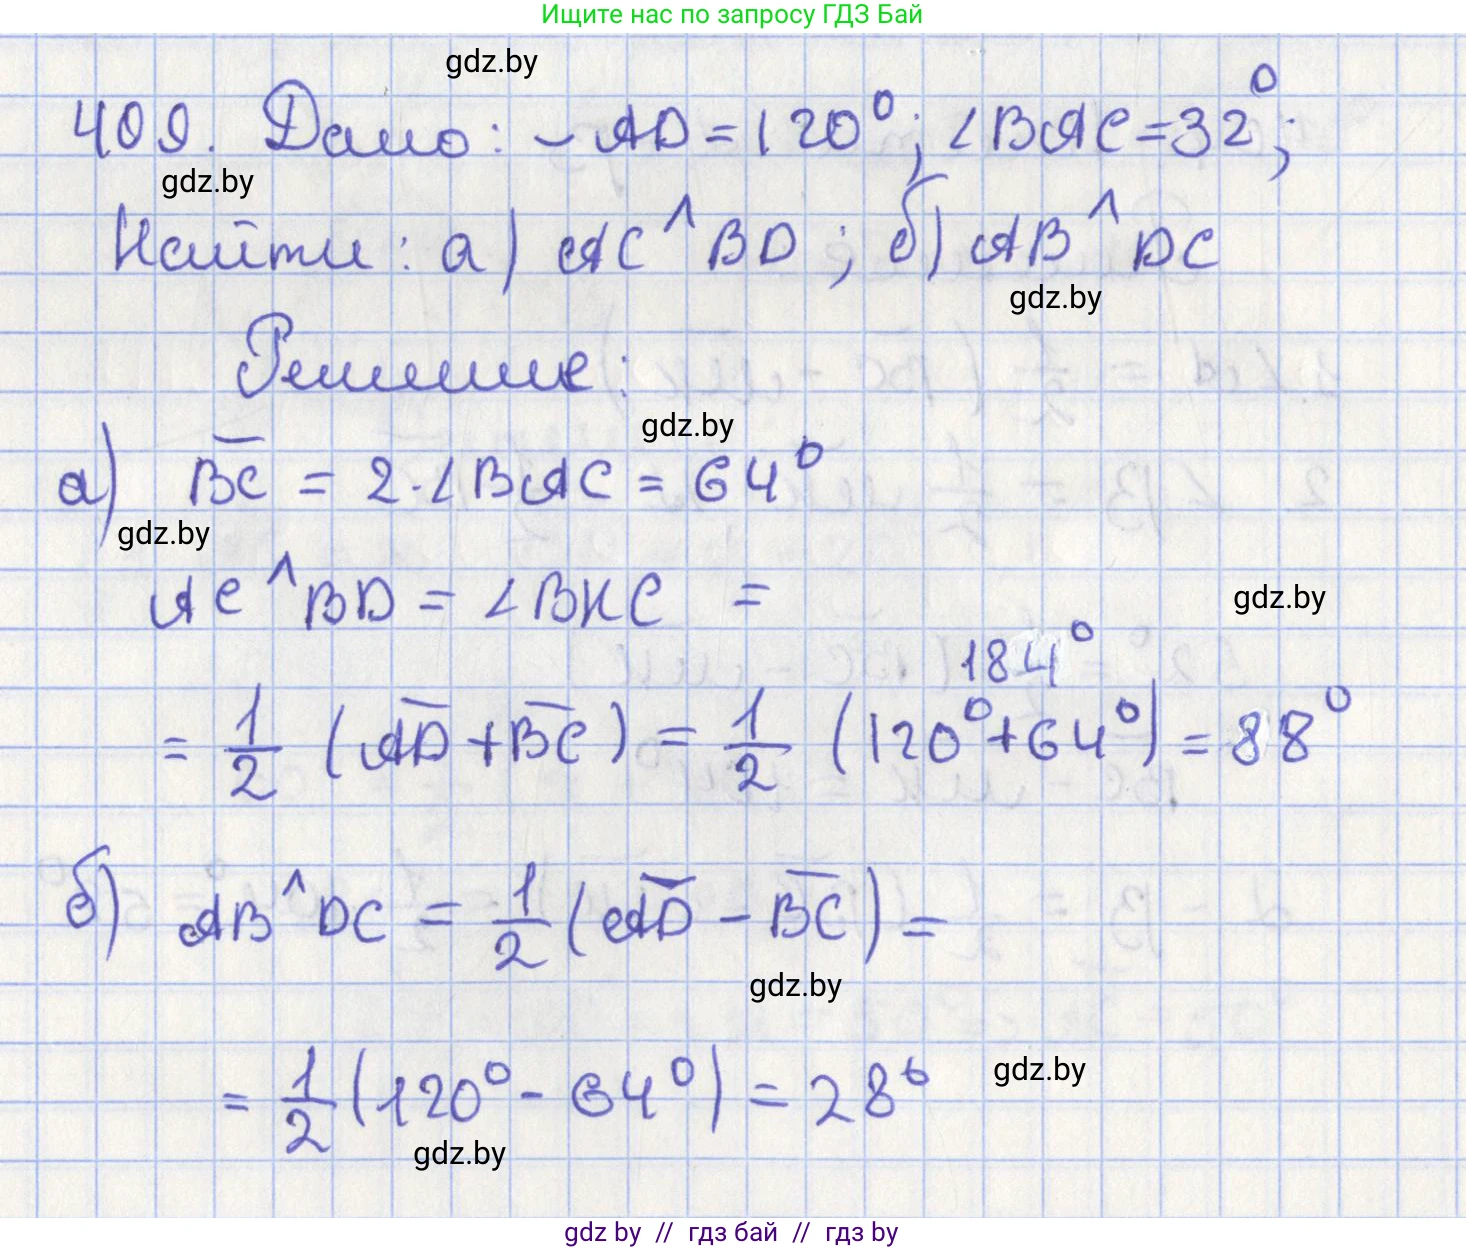 Ищите нас по запросу ГДЗ Бай
gdz.by
409. Дано: ⌣AD = 120°; ∠BAC = 32°;
gdz.by
Найти: а) AC ^ BD; б) AB ^ DC
gdz.by
Решение:
gdz.by
а) BC = 2·∠BAC = 64°
gdz.by
AC ^ BD = ∠BKC =
gdz.by
184°
= 1/2 (AD + BC) = 1/2 (120° + 64°) = 88°
б) AB ^ DC = 1/2 (AD - BC) =
gdz.by
= 1/2 (120° - 64°) = 28°
gdz.by
gdz.by
gdz by // гдз бай // гдз by